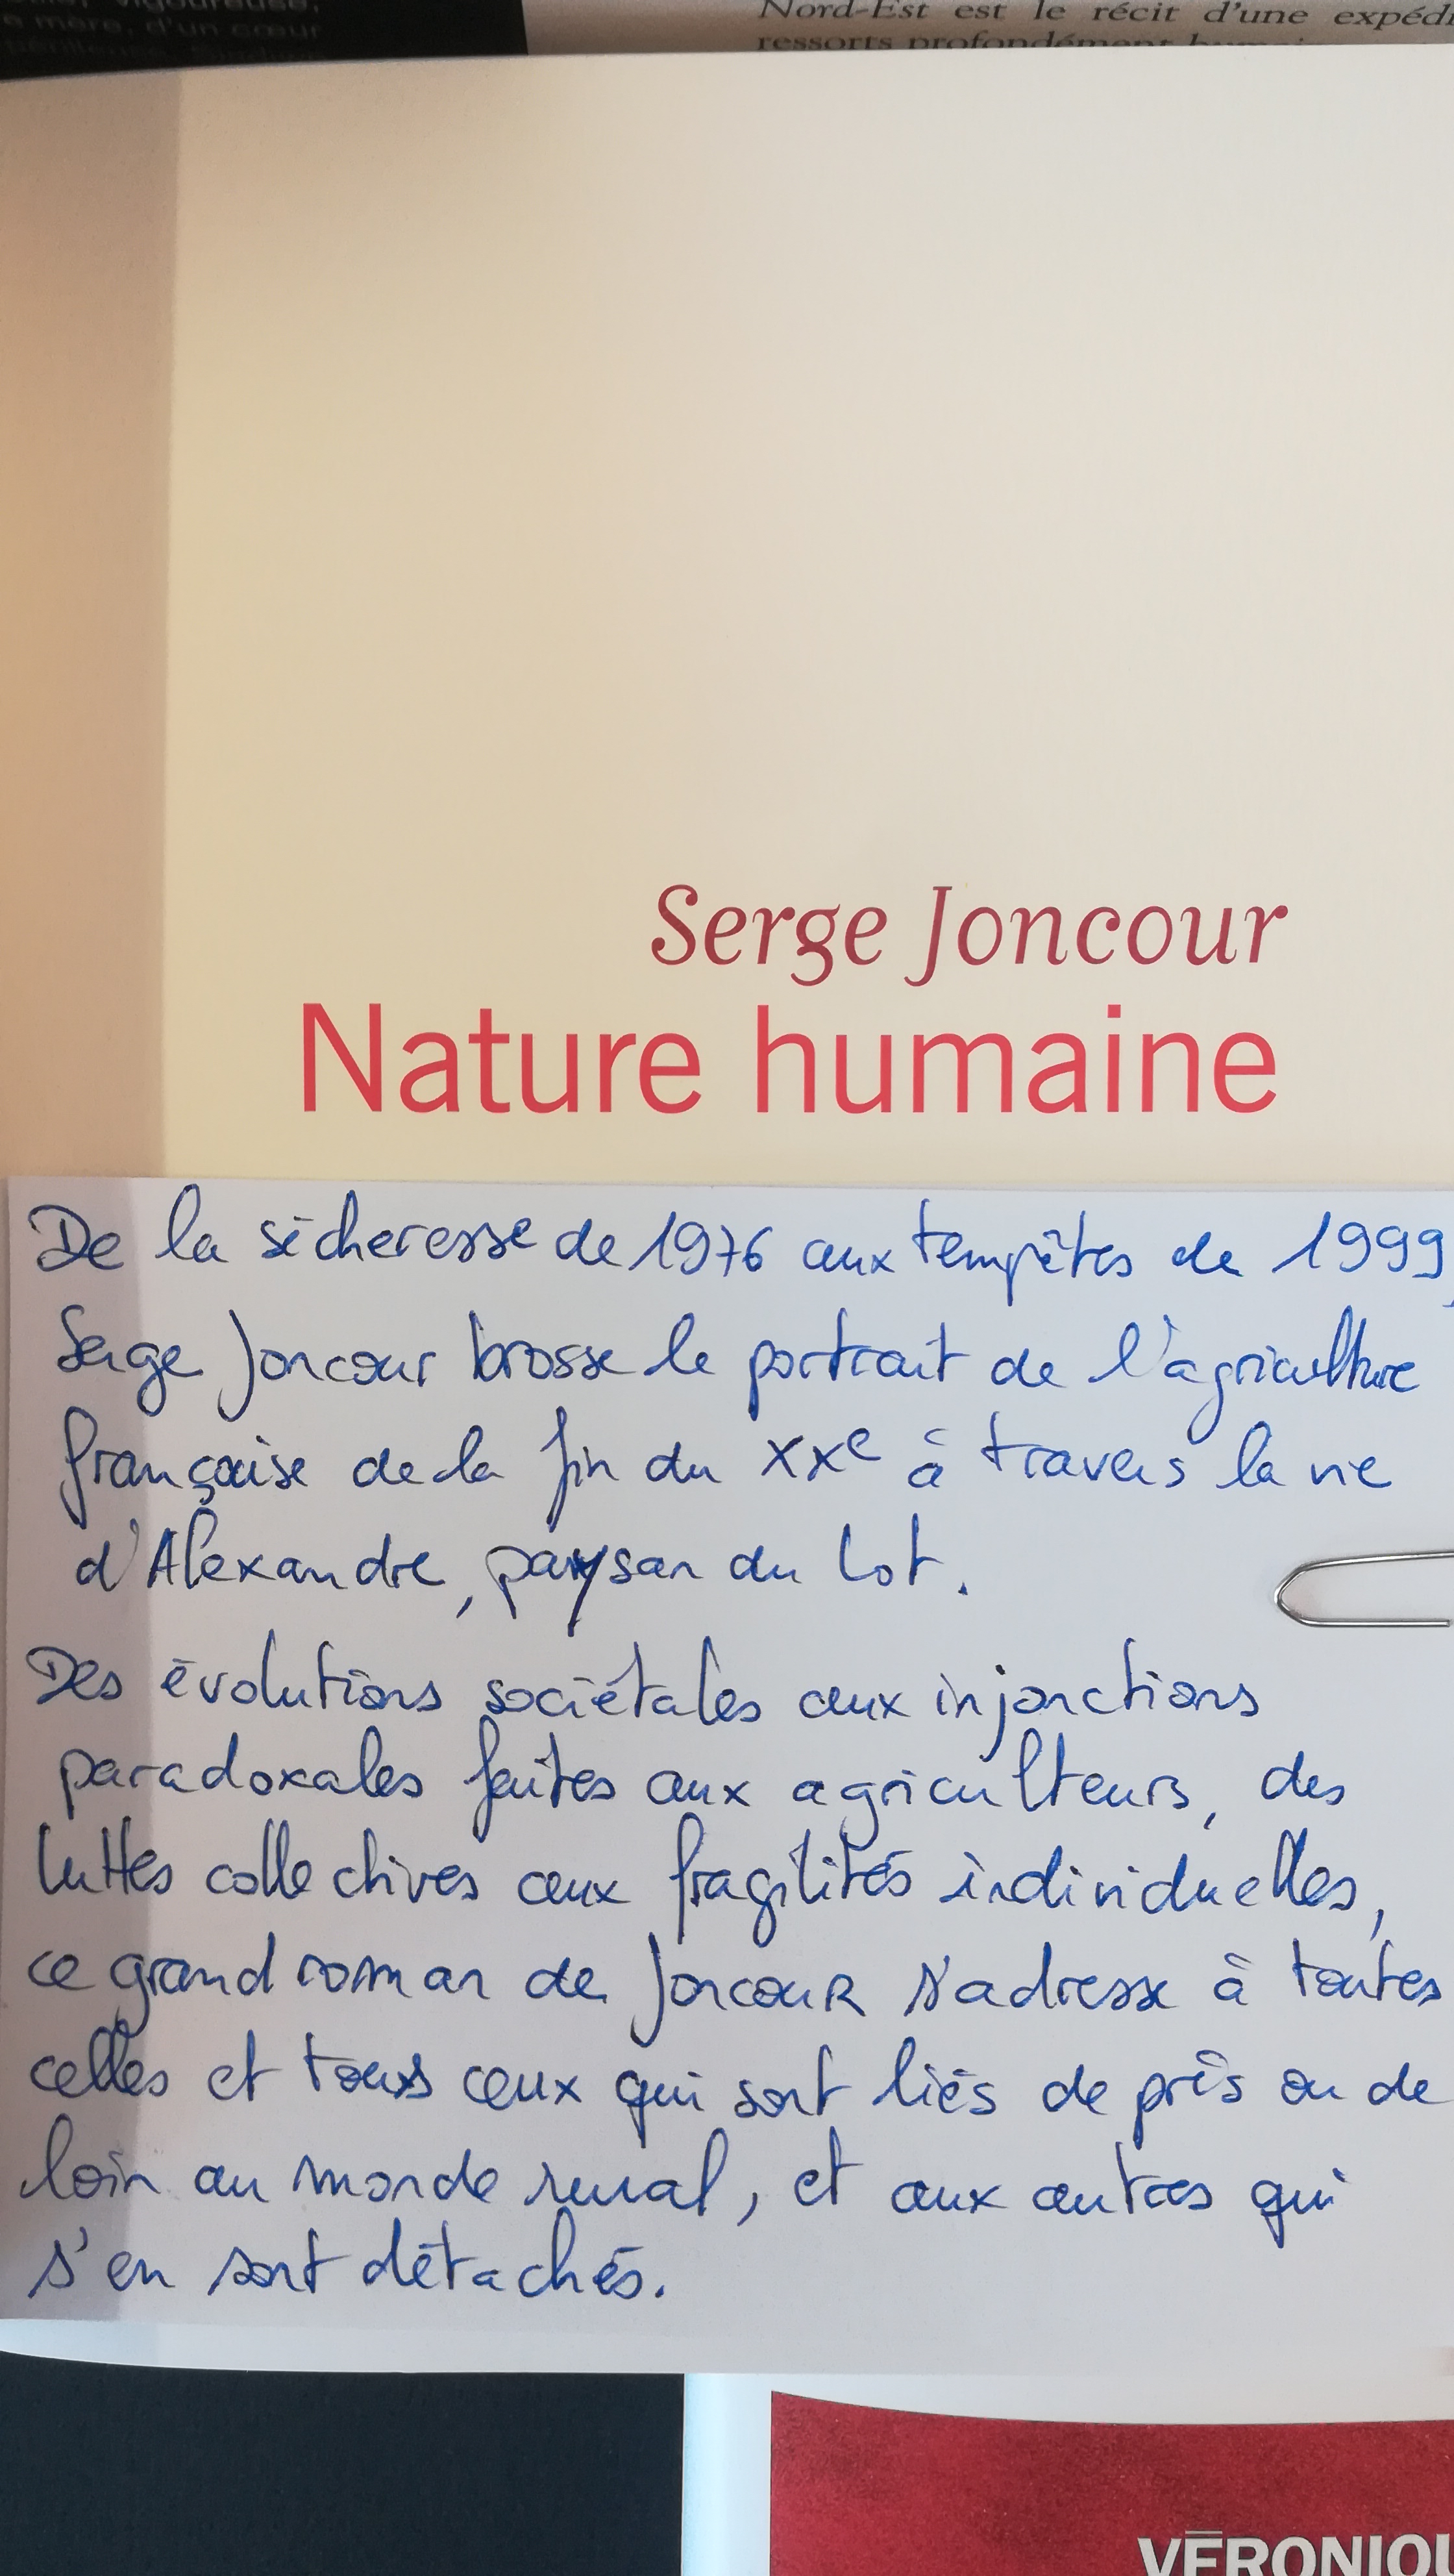 vigoureuse,
e mère, d'un cœur
Nord-Est est le récit d'une expédi
ressorts profondément
Serge Joncour
Nature humaine
De la sécheresse de 1976 aux tempêtes de 1999,
Serge Joncour brosse le portrait de l'agriculture
française de la fin du XXe à travers la vie
d'Alexandre, paysan du Lot.
Des évolutions sociétales aux injonctions
paradoxales faites aux agriculteurs, des
luttes collectives aux fragilités individuelles,
ce grand roman de Joncour s'adresse à toutes
celles et tous ceux qui sont liés de près ou de
loin au monde rural, et aux autres qui
s'en sont détachés.
VÉRONIQU